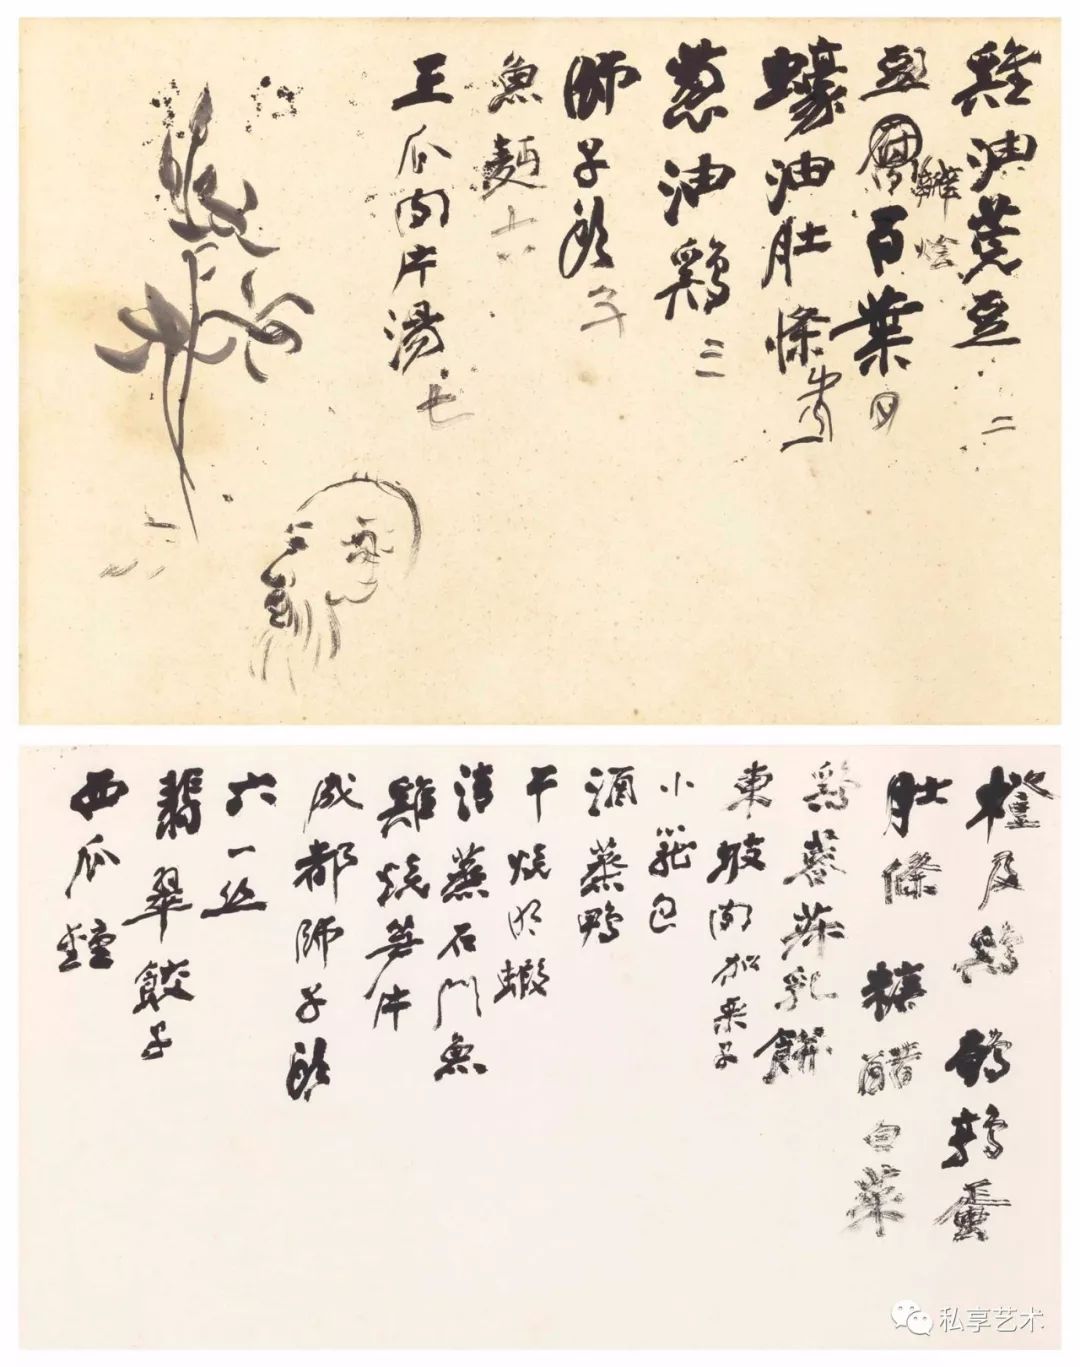 雞油蔻豆 二
豆腐百葉
辦 燴
蠔油肚條
葱油鷄 三
師子頭
魚麵 六
王瓜肉片湯 七
橙皮鷄 鵪鶉蛋
肚條 糖醋白菜
鷄蓉菜乳餅
東坡肉加栗子
小籠包
酒蒸鴨
干燒明蝦
清蒸石門魚
雞燒筍片
成都師子頭
六一丝
翡翠餃子
西瓜盅
私享艺术